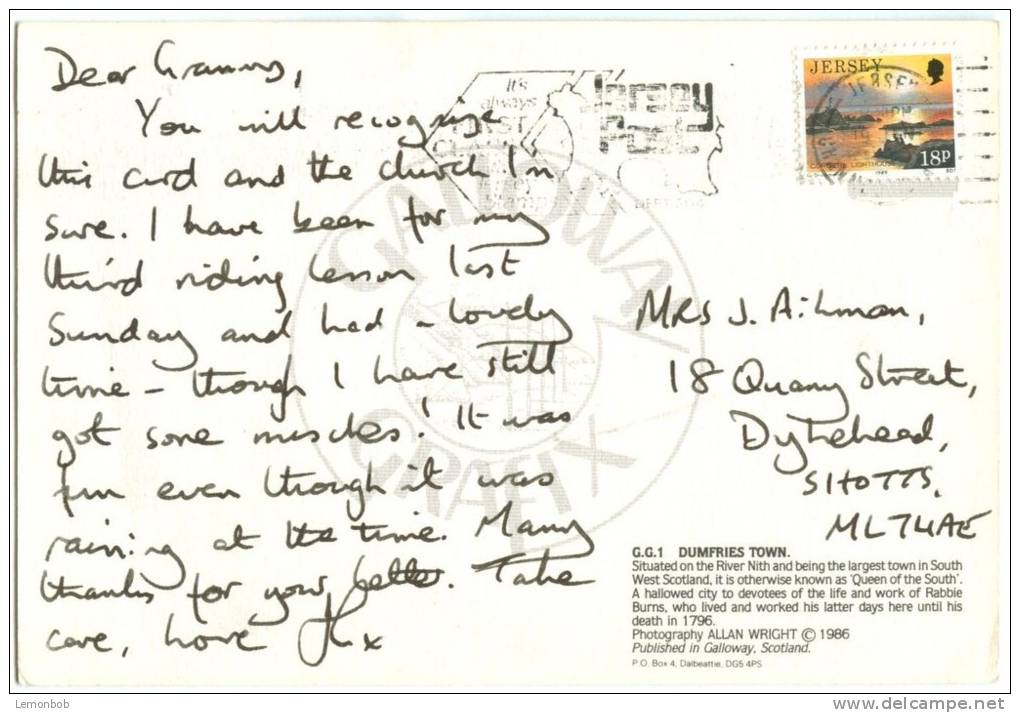 Dear Granny,
You will recognise
this card and the church I'm
sure. I have been for my
third riding lesson last
Sunday and had a lovely
time - though I have still
got sore muscles! It was
fun even though it was
raining at the time. Many
thanks for your letter. Take
care, love
x
It's
always
FIRST
CLASS
Jersey
Post
JERSEY
18p
1989
JERSEY
Mrs J. Aitman,
18 Quarry Street,
Dykehead,
SHOTTS.
ML7 4AE
GALLOWAY
GRAFIX
G.G.1 DUMFRIES TOWN.
Situated on the River Nith and being the largest town in South
West Scotland, it is otherwise known as 'Queen of the South'.
A hallowed city to devotees of the life and work of Rabbie
Burns, who lived and worked his latter days here until his
death in 1796.
Photography ALLAN WRIGHT © 1986
Published in Galloway, Scotland.
P.O. Box 4, Dalbeattie, DG5 4PS
Lemonbob
delcampe.net